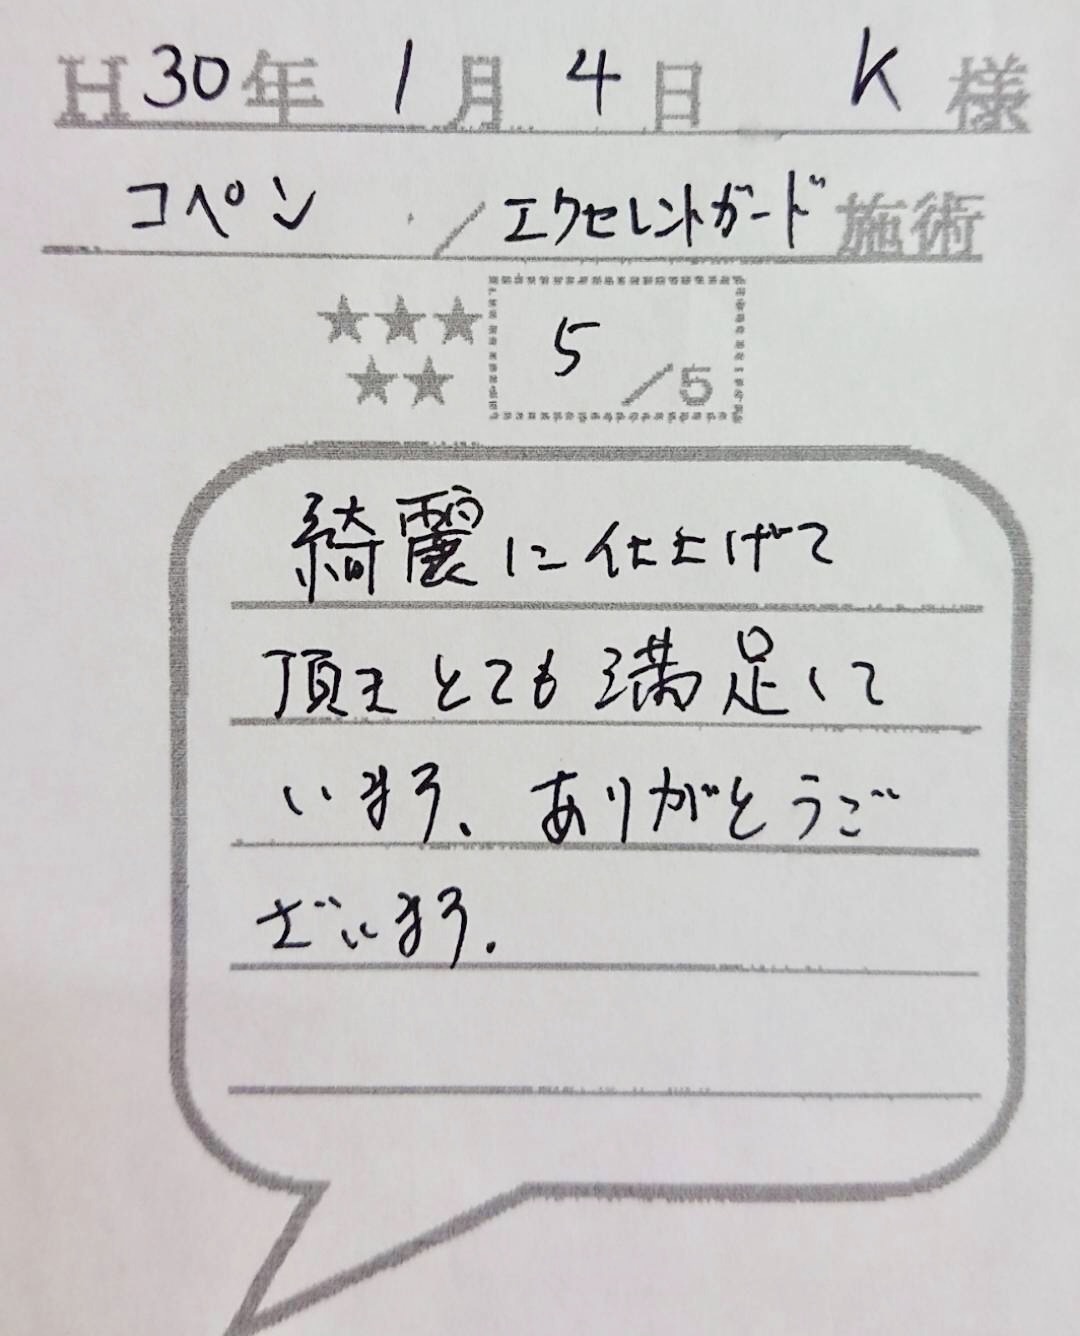 H30年 1月 4日 K様
コペン / エクセレントガード 施術
★★★
★★
5/5
綺麗に仕上げて
頂きとても満足して
います、ありがとうご
ざいます.